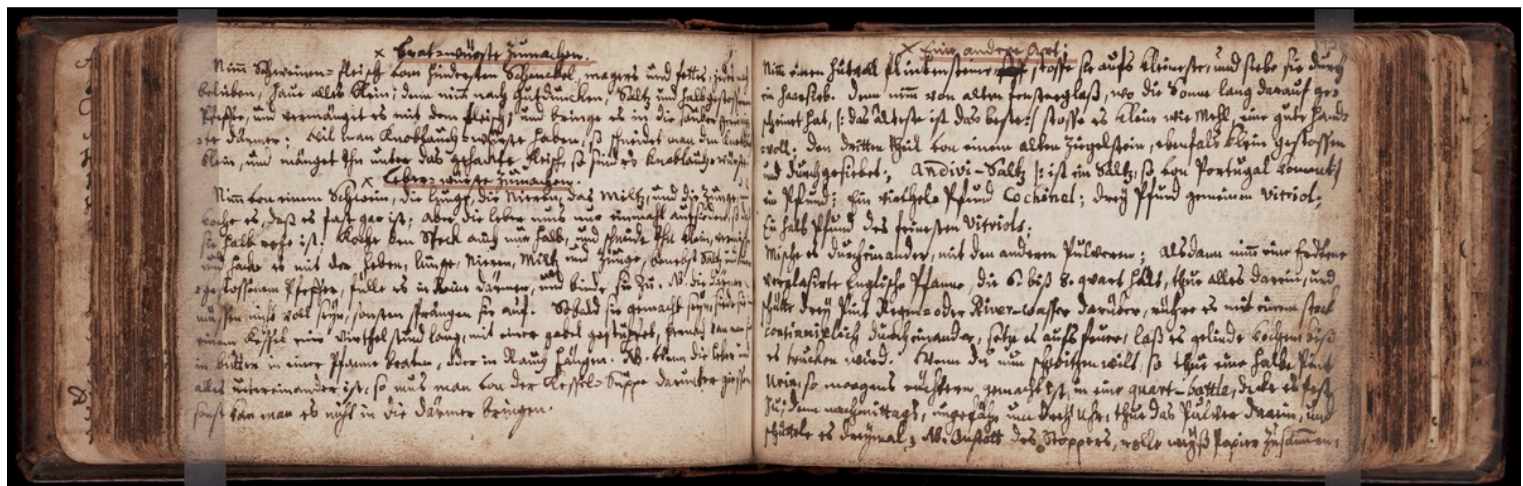 × Brat-würste zumachen.
Nimm Schweinen-fleisch vom hindersten Schenckel, mageres und fettes,
belieben, haue alles klein; denn nim nach gutduncken, Saltz und halbgestossen
Pfeffer, und vermänget es mit dem fleisch, und bringe es in die sauber
därmer; Wil man Knoblauch-würste haben, so schneidet man den
klein, und mänget Ihn unter das gehackte fleisch, so sind es Knoblauch-würst
× Leber-würste zumachen.
Nimm von einem Schwein, die Lunge, die Nieren, das Miltz, und die Zunge,
koche es, daß es fast gar ist; aber die leber mus nur einmahl aufsieden,
sie halb rohe ist. Koche den Speck auch nur halb, und schneide Ihn klein,
und hacke es mit der leber, lunge, Nieren, Miltz und Zunge, benebst Saltz und
gestossenem Pfeffer, fülle es in Reine därmer, und binde sie zu. NB. die därmer
müssen nicht voll seyn, sonsten sprängen sie auf. Sobald sie gemacht seyn, siede sie in
einem Kessel eine Virthel stund lang, mit einer gabel gestüpfet, hernach kan man sie
in butter in einer Pfanne braten, oder in Rauch hängen. NB. Wenn die leber und
alles untereinander ist, so mus man von der Kessel-Suppe darunter giessen
sonst kan man es nicht in die därmer bringen.
× Eine andere Art:
Nim einen hutvoll flinckensteine, stosse sie aufs kleineste, und siebe sie durch
ein haarsieb. denn nimm von alten fensterglaß, wo die Sonne lang darauf ge-
scheinet hat, /: das älteste ist das beste :/ stosse es klein wie Mehl, eine gute hand-
voll; den dritten theil von einem alten Ziegelstein, ebenfals klein gestossen
und durchgesiebet; Andivi-Saltz /: ist ein Saltz, so von Portugal komt :/
ein Pfund; Ein viethels Pfund Cochinel; drey Pfund gemeinen Vitriol;
Ein halb Pfund des feinesten Vitriols;
Mische es durcheinander, mit den anderen Pulveren; Alsdann nimm eine Erdene
verglasirte Englische Pfanne, die 6. biß 8. quart hält, thue alles darein, und
schütte drey Pint Regen- oder River-wasser darüber, rühre es mit einem stock
continuirlich durcheinander, setze es aufs feuer, laß es gelinde kochen, biß
es trucken wird. Wenn du nun schwitzen wilt, so thue eine halbe Pint
Urin, so morgens nüchtern gemacht ist, in eine quart-bottle, decke es fest
zu; denn nachmittags, ungefähr um drey Uhr, thue das Pulver darein, und
schüttele es dreymal; NB. Anstatt des Stoppers, rolle weiß Papier zusammen;